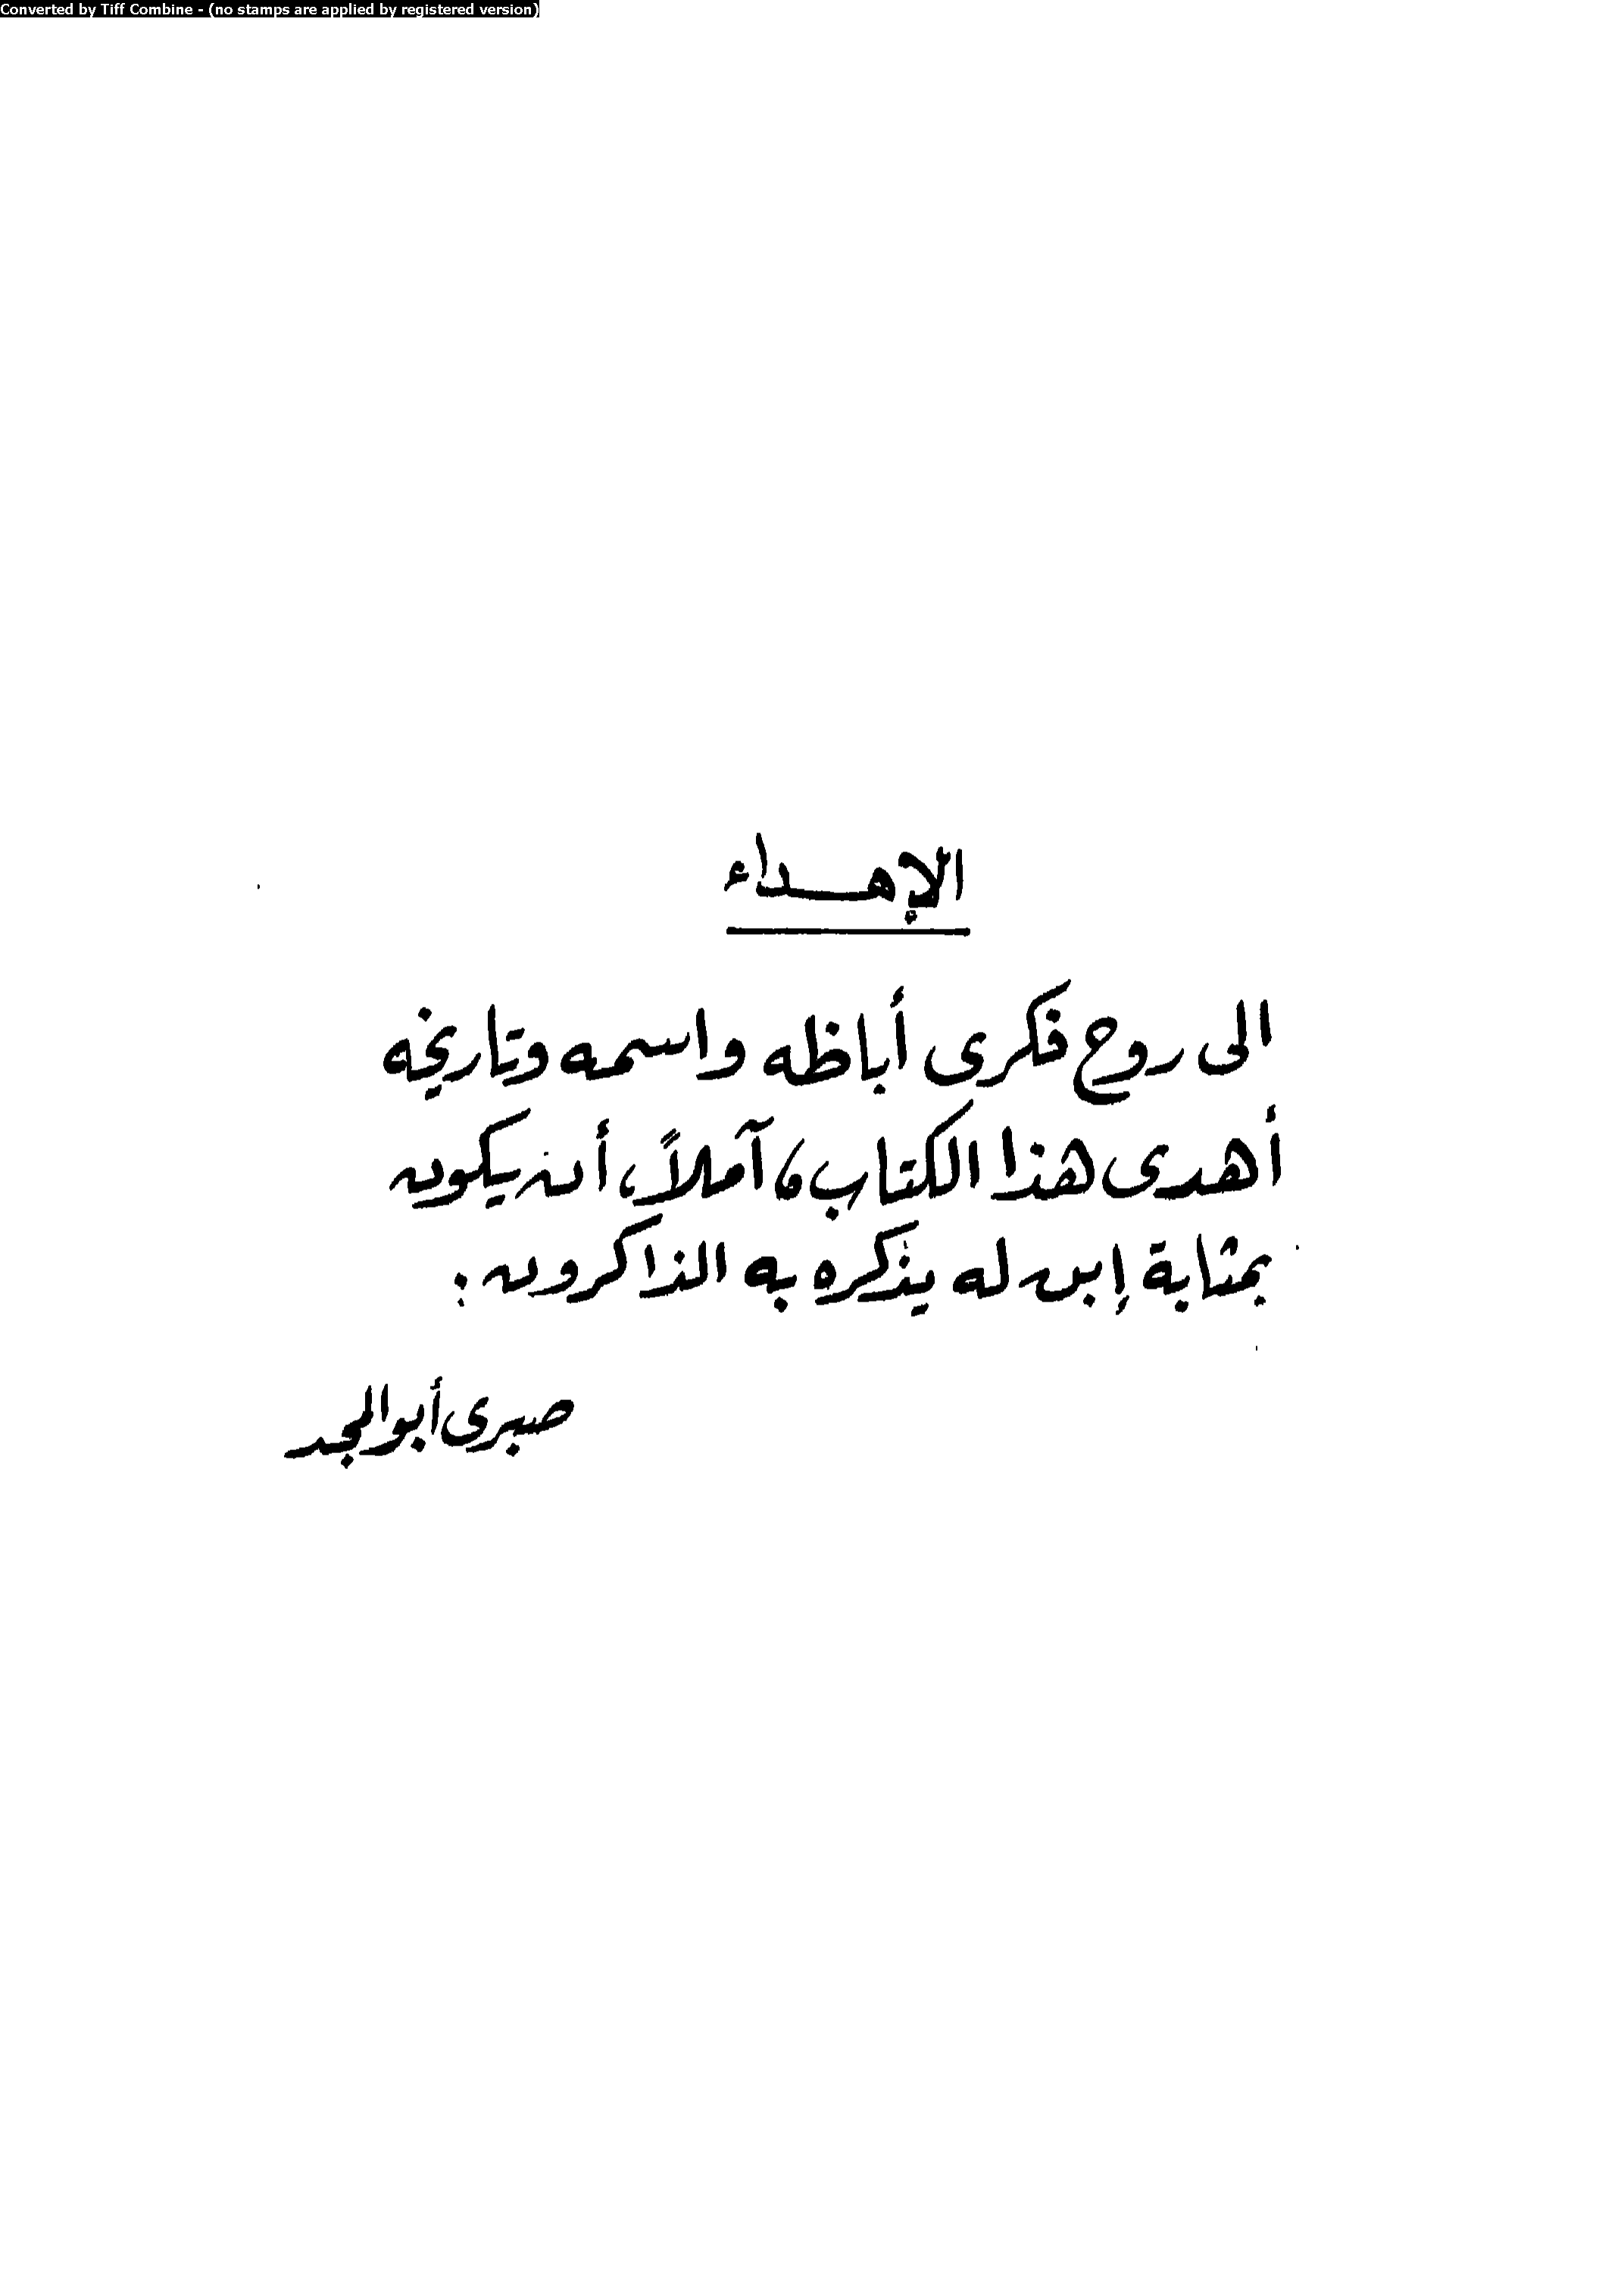 Converted by Tiff Combine - (no stamps are applied by registered version)
الإهـداء
الى روح فكرى أباظه واسمه وتاريخه
أهدى هذا الكتاب، آملاً، أن يكون
بمثابة إبن له يذكره به الذاكرون.
صبرى أبو المجد